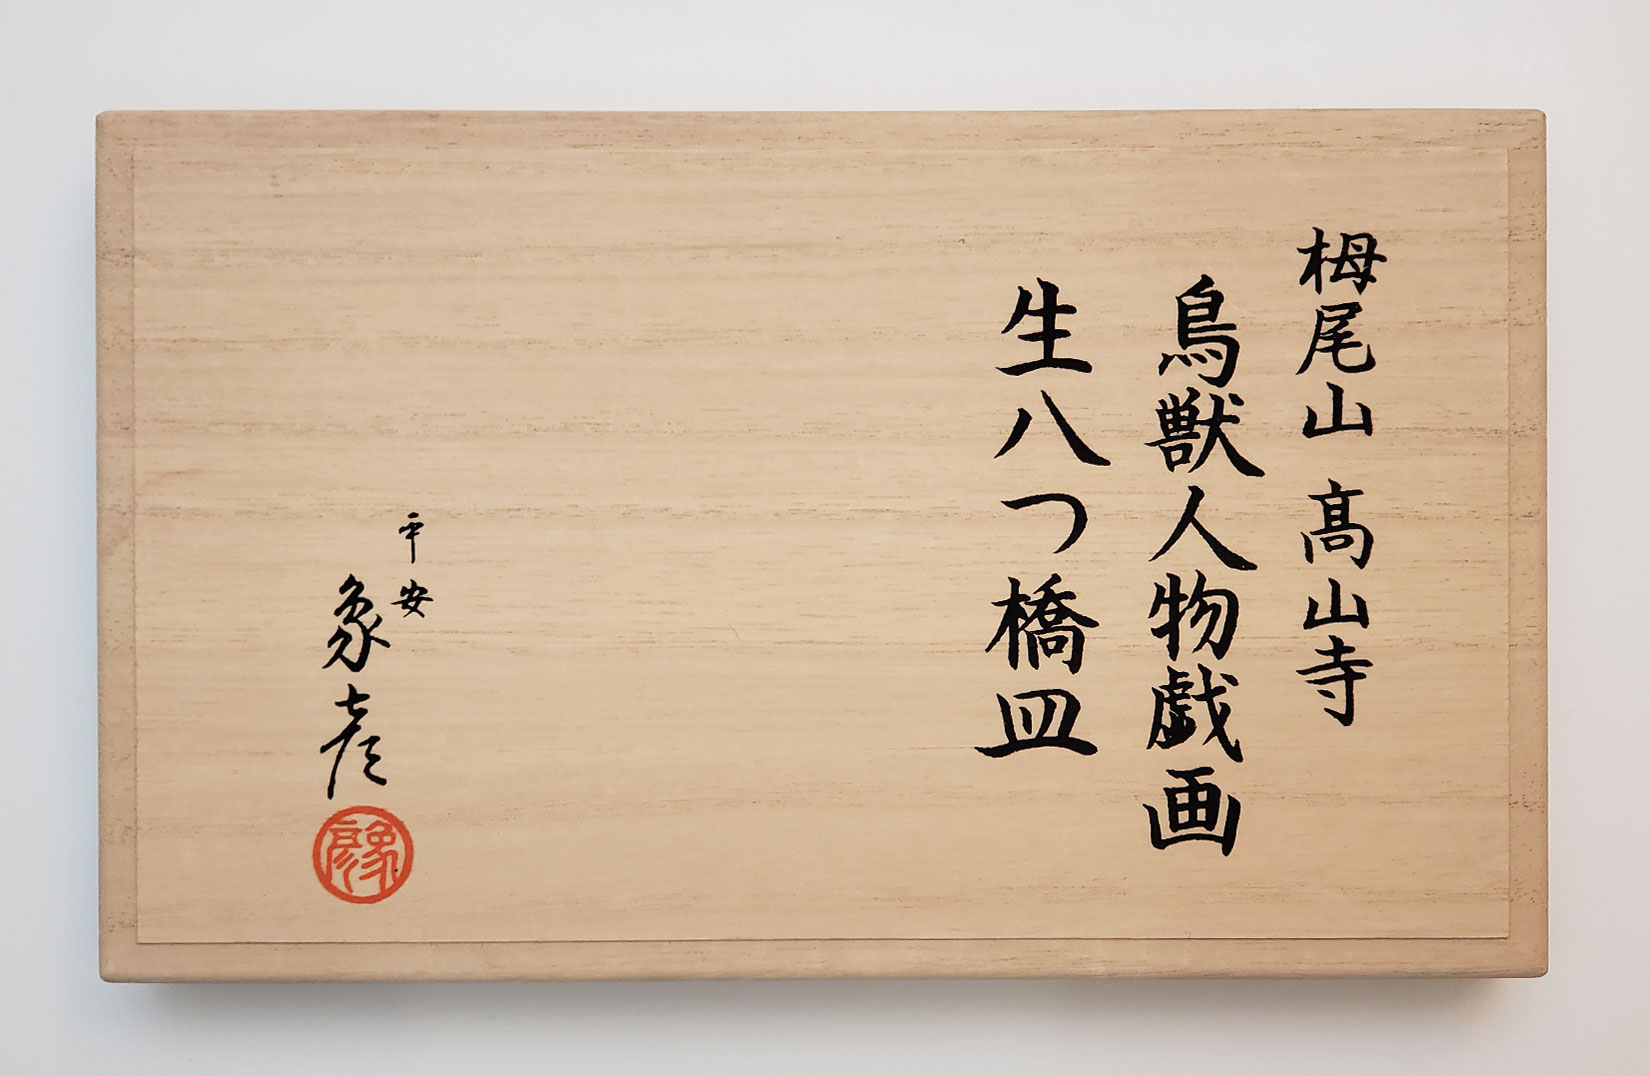 栂尾山 髙山寺
鳥獣人物戯画
生八つ橋皿
平安
象彦
象彦